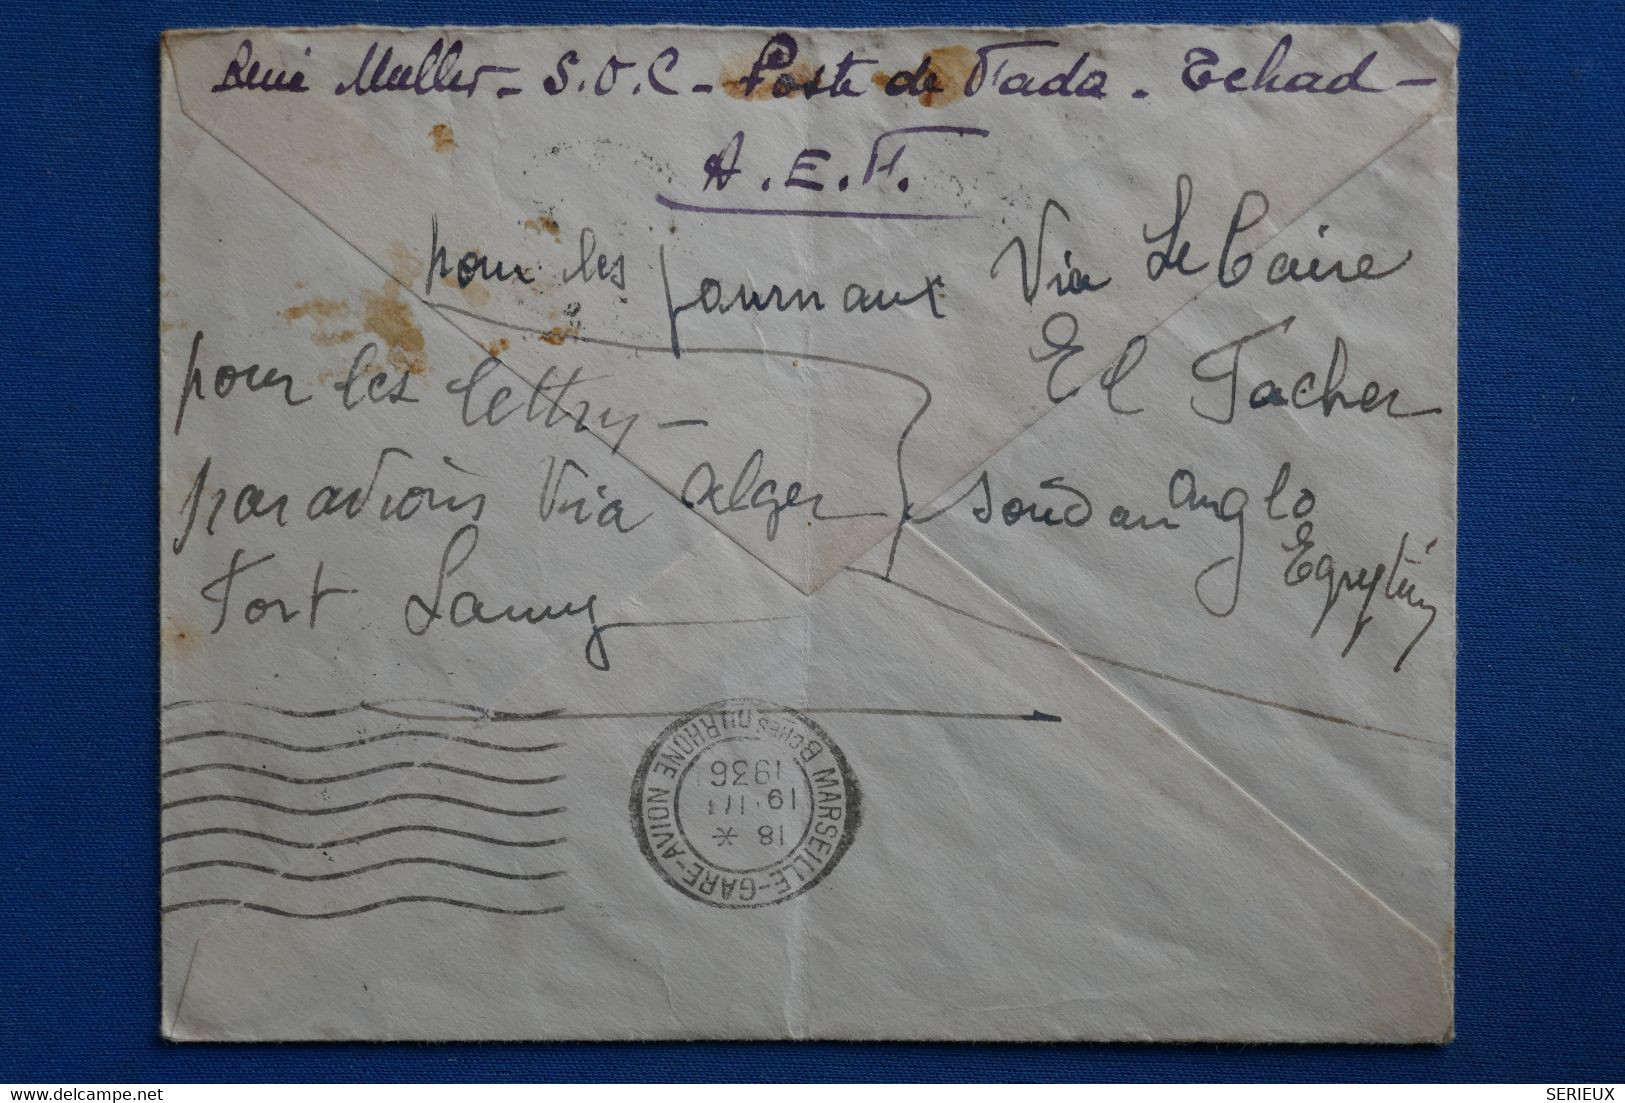 René Muller - S.O.C - Poste de Fada - Tchad -
A.E.F.
pour les journaux Via Le Caire
El Facher
soudan anglo
Egyptien
pour les lettres -
par avion Via Alger
Fort Lamy
MARSEILLE-GARE-AVION
BCHES DU RHONE
18 *
19 · III
1936
SERIEUX